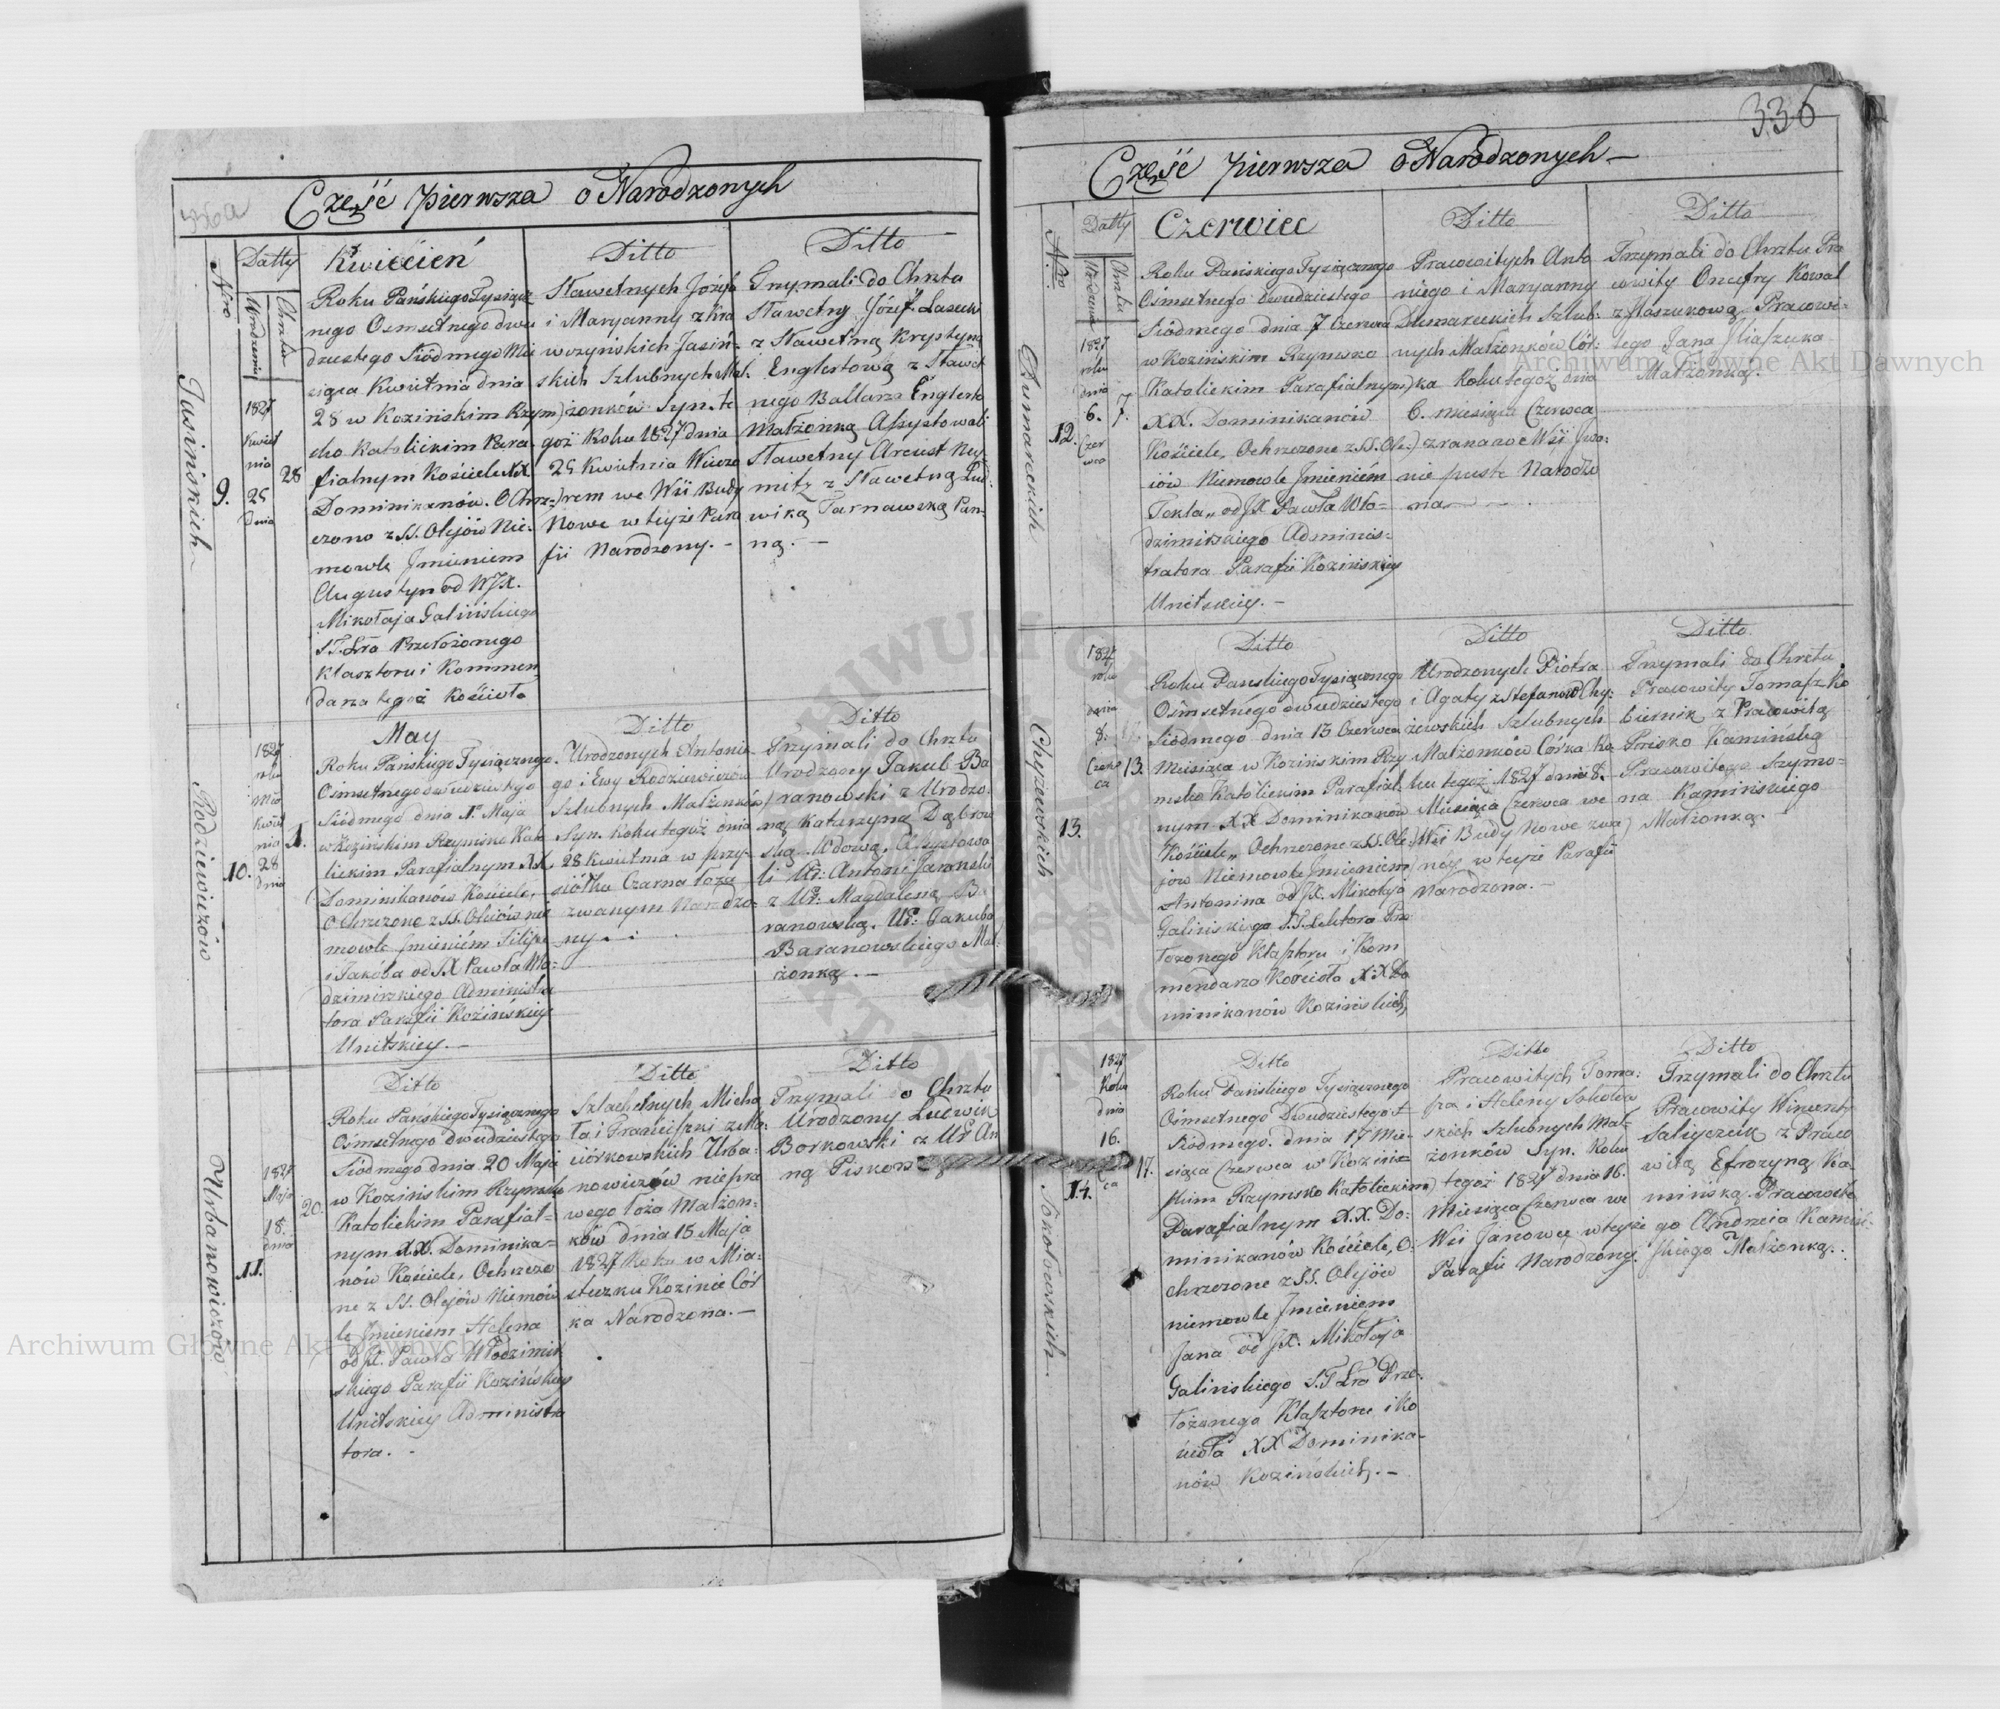 336
Część Pierwsza o Narodzonych
Nro
Datty
Urodzenia
Chrztu
Kwiecień
Ditto
Ditto
Jasińskich
9.
1827
Kwiet
nia
25
dnia
28
Roku Pańskiego Tysiącz
nego Osmsetnego dwu
dziestego Siódmego Mie
siąca Kwietnia dnia
28 w Kozińskim Rzym
sko Katolickim Para
fialnym Kościele XX
Dominikanów. Ochrz
czono z SS. Olejów Nie
mowle Jmieniem
Augustyn od WJX.
Mikołaja Galińskiego
S.T.Lra Przełożonego
Klasztoru i Kommen
darza tegoż Kościoła
Sławetnych Józefa
i Maryanny z Kra
wczyńskich Jasiń
skich Szlubnych Mał
żonków Syn. te
goż Roku 1827 dnia
25 Kwietnia Wieczo
rem we Wsi Budy
Nowe w teyże Para
fii Narodzony. –
Trzymali do Chrztu
Sławetny Józef Lasecki
z Sławetną Krystyną
Englertową z Sławet
nego Baltazra Englerta
Małżonką Assystowali
Sławetny August Ney
mitz z Sławetną Lud
wiką Tarnawską Pan
ną. –
May
Ditto
Ditto
Rodziewiczów
10.
1827
roku
Kwiet
nia
28
dnia
1.
Roku Pańskiego Tysiącznego
Osmsetnego dwudziestego
Siódmego dnia 1º Maja
w Kozińskim Rzymsko Kato
lickim Parafialnym XX.
Dominikanów Kościele,
Ochrzczone z SS. Olejów nie
mowle Jmieniem Filip
i Jakóba od JX Pawła Wło
dzimirskiego Administra
tora Parafii Kozińskiey
Unitskiey. –
Urodzonych Antonie
go i Ewy Rodziewiczów
Szlubnych Małżonków
Syn. Roku tegoż dnia
28 Kwietnia w przy
siółku Czarna Łoza
zwanym Narodzo
ny.
Trzymali do Chrztu
Urodzony Jakub Ba
ranowski z Urodzo
ną Katarzyną Dąbrow
ską Wdową, Assystowa
li Ur: Antoni Jaroński
z Ur: Magdaleną Ba
ranowską. Ur: Jakuba
Baranowskiego Mał
żonką. –
Ditto
Ditto
Ditto
Urbanowiczów
11.
1827
Maja
18.
dnia
20.
Roku Pańskiego Tysiącznego
Ośmsetnego dwudziestego
Siódmego dnia 20 Maja
w Kozińskim Rzymsko
Katolickim Parafial
nym XX. Dominika
nów Kościele, Ochrzczo
ne z SS. Olejów Niemow
le Jmieniem Helena
od JX. Pawła Włodzimir
skiego Parafii Kozińskiey
Unitskiey Administra
tora. -
Szlachetnych Micha
ła i Franciszki z
ciórkowskich Urba
nowiczów niepra
wego łoża Małżon
ków dnia 15 Maja
1827 Roku w Mia
steczku Kozinie Cór
ka Narodzona. –
Trzymali do Chrztu
Urodzony Ludwik
Borkowski z Ur An
ną
Część Pierwsza o Narodzonych –
Nro
Datty
Urodzenia
Chrztu
Czerwiec
Ditto
Ditto
Dumareckich
12.
1827
roku
dnia
6.
Czer
wca
7.
Roku Pańskiego Tysiącznego
Ośmsetnego dwudziestego
Siódmego dnia 7 Czerwca
w Kozińskim Rzymsko
Katolickim Parafialnym
XX. Dominikanów
Kościele, Ochrzczone z SS. Ole
iów Niemowle Jmieniem
Tekla, od JX Pawła Wło
dzimirskiego Adminis
tratora Parafii Kozińskiey
Unitskiey. –
Pracowitych Anto
niego i Maryanny
Dumareckich Szlub
nych Małżonków Cór
ka Roku tegoż dnia
6. miesiąca Czerwca
z rana we Wsi Jwa
nie puste Narodzo
na
Trzymali do Chrztu Pra
cowity Onufry Kowal
z Maszurową Pracowi
tego Jana
Małżonką.
Ditto
Ditto
Ditto
Chyżewskich
13.
1827
roku
dnia
8.
Czerw
ca
13.
Roku Pańskiego Tysiącznego
Ośmsetnego dwudziestego
Siódmego dnia 13 Czerwca
Miesiąca w Kozińskim Rzy
msko Katolickim Parafial
nym XX Dominikanów
Kościele, Ochrzczone z SS. Ole
jów Niemowle Jmieniem
Antonina od JX. Mikołaja
Galińskiego S.T. Lektora Prze
łożonego Klasztoru i Kom
mendarza Kościoła XX Do
minikanów Kozińskich
Urodzonych Piotra
i Agaty z Stefanów Chy
żewskich Szlubnych
Małżonków Córka Ro
ku tegoż 1827 dnia 8.
Miesiąca Czerwca we
Wsi Budy Nowe zwa
ney w teyże Parafii
Narodzona. –
Trzymali do Chrztu
Pracowity Tomasz Ko
biernik z Pracowitą
Kamińską
Pracowitego Szymo
na Kamińskiego
Małżonką.
Ditto
Ditto
Ditto
Sokołowskich
14.
1827
Roku
dnia
16.
ca
17.
Roku Pańskiego Tysiącznego
Ośmsetnego Dwudziestego
Siódmego. dnia 17 Mie
siąca Czerwca w Koziń
skim Rzymsko Katolickim
Parafialnym XX. Do
minikanów Kościele, O
chrzczone z SS. Olejów
niemowle Jmieniem
Jana od JX. Mikołaja
Galińskiego S.T Lra Prze
łożonego Klasztoru i Ko
ścioła XX Dominika
nów Kozińskich. –
Pracowitych Toma
sza i Heleny Sokołow
skich Szlubnych Mał
żonków Syn. Roku
tegoż 1827 dnia 16.
Miesiąca Czerwca we
Wsi Janowce w teyże
Parafii Narodzony.
Trzymali do Chrztu
Pracowity Wincenty
z Praco
witą Efrozyną Ka
mińską Pracowite
go Andrzeia Kamiń
skiego Małżonką.
Archiwum Główne Akt Dawnych
Archiwum Główne Akt Dawnych